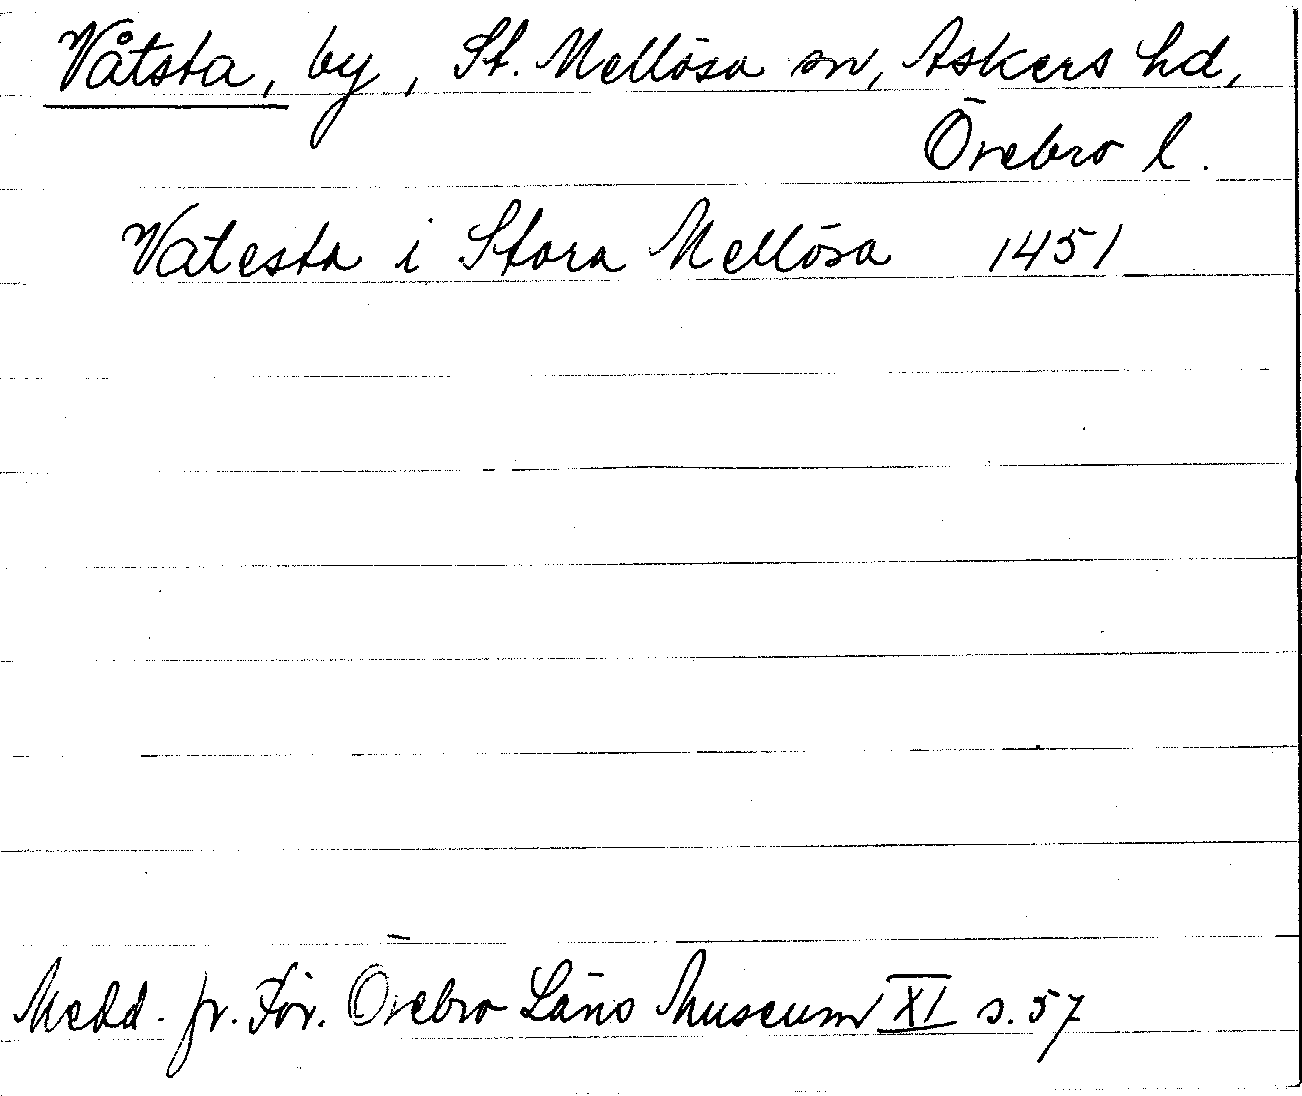 Våtsta, by, St. Mellösa sn, Askers hd,
Örebro l.
Vatesta i Stora Mellösa 1451
Medd. fr. För. Örebro Läns Museum XI s. 57